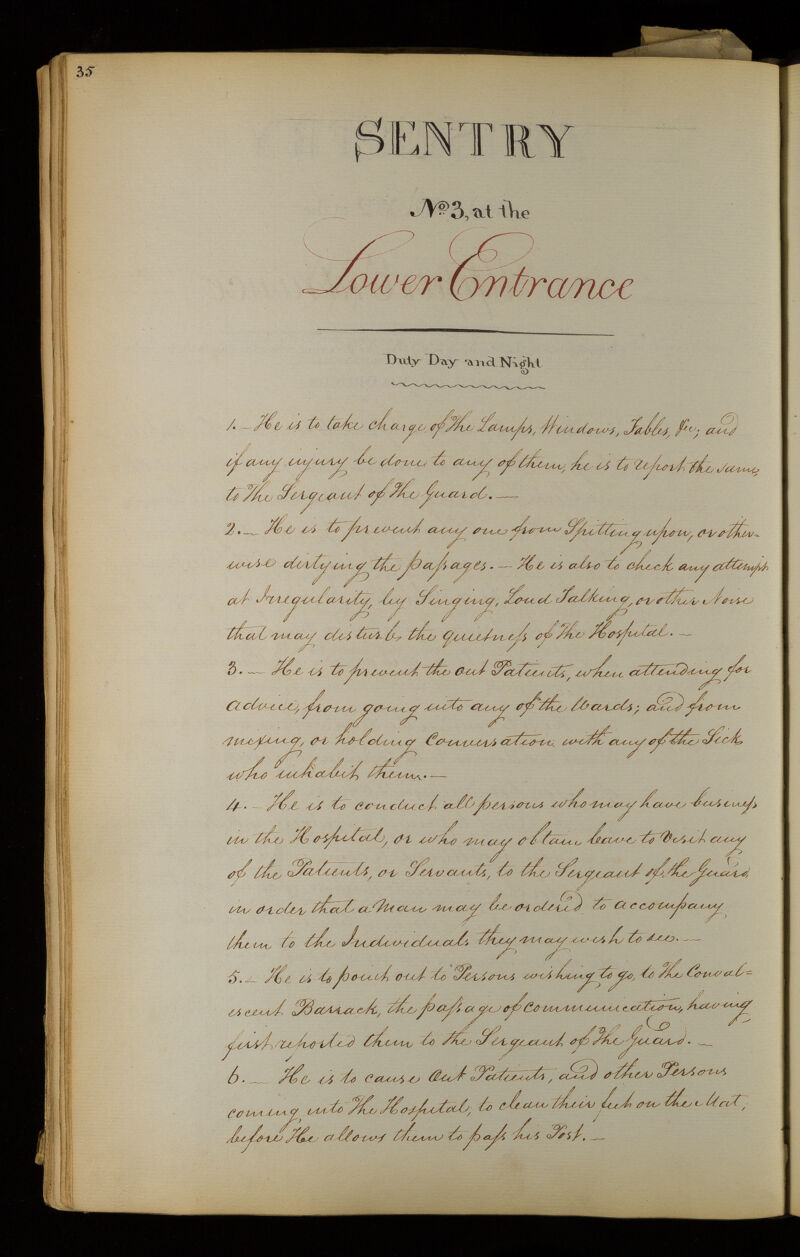 35
SENTRY
No. 3, at the
Lower Entrance
Duty Day and Night
1. — He is to take charge of The Lamps, Windows, Tables, &c; and
if any injury be done to any of them, he is to report the same,
to The Sergeant of The Guard. —
2. — He is to prevent any one from Spitting upon, or other-
wise dirtying the passages. — He is also to check any attempt
at Irregularity, by Singing, Loud Talking, or other Noise
that may disturb, the quietness of The Hospital. —
3. — He is to prevent the out Patients, when attending for
advice, from going into any of the Wards; and from
mixing, or holding Conversation with any of the Sick,
who inhabit them. —
4. — He is to conduct all persons who may have business
in the Hospital, or who may obtain leave to Visit any
of the Patients, or Servants, to the Sergeant of the Guard
in order that a Man may be ordered to accompany
them to the Individuals they may wish to see. —
5. — He is to point out to Persons wishing to go, to The Conval=
escent Barrack, the passage of communication, having
first reported them to the Sergeant of The Guard. —
6. — He is to cause Out Patients, and other Persons
coming into The Hospital, to clean their feet on the Mat,
before He allows them to pass his Post. —